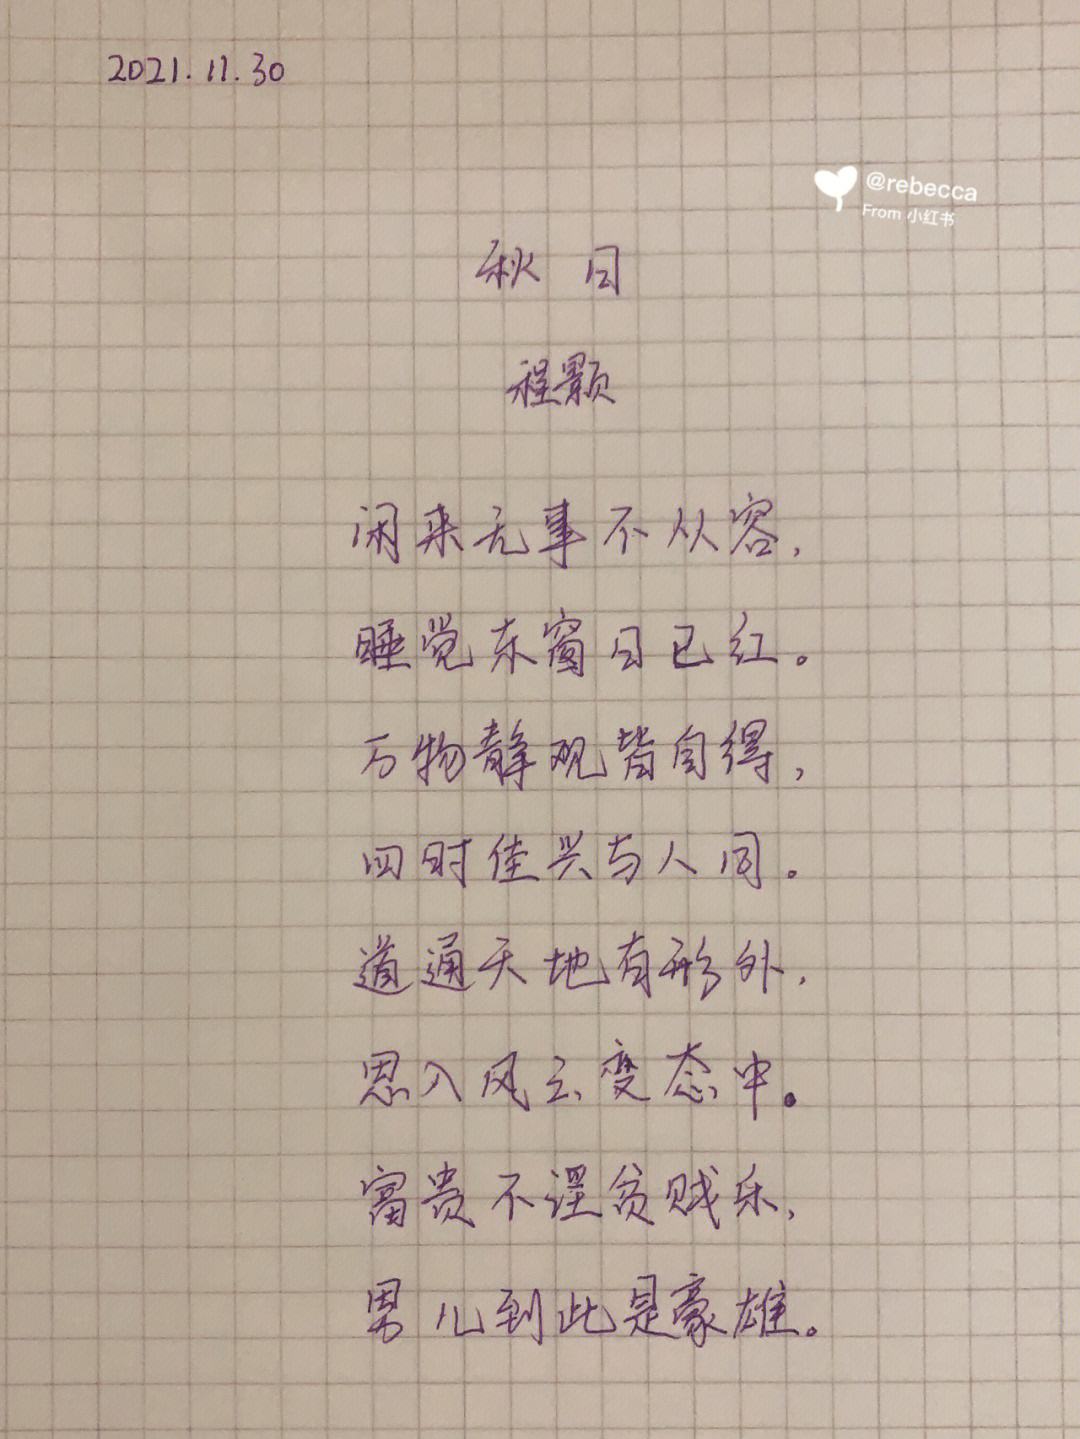 2021.11.30
@rebecca
From 小红书
秋日
程颢
闲来无事不从容，
睡觉东窗日已红。
万物静观皆自得，
四时佳兴与人同。
道通天地有形外，
思入风云变态中。
富贵不淫贫贱乐，
男儿到此是豪雄。